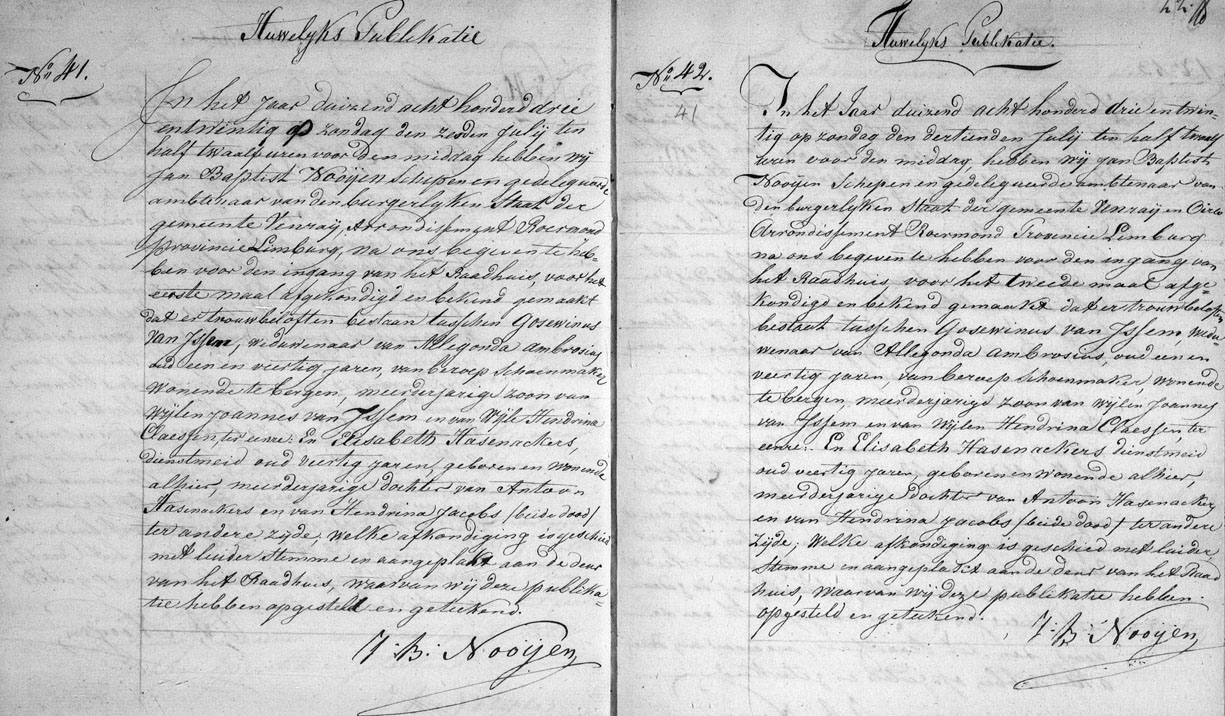 Huwelyks Publikatie
No 41.
In het Jaar duizend acht honderd drie
entwentig op zondag den zesden Julij ten
half twaalf uuren voor den middag hebben wij
Jan Baptist Nooijen Schepen en gedelequeerde
ambtenaar van den burgerlyken Staat der
gemeente Venraij, Arrondissement Roermond
provincie Limburg, na ons begeven te heb-
ben voor den ingang van het Raadhuis, voor het
eerste maal afgekondigd en bekend gemaakt
dat er trouwbeloften bestaan tusschen Gosewinus
van Issem, weduwenaar van Allegonda Ambrosius
oud een en veertig jaren, van beroep Schoenmaker
wonende te bergen, meerderjarige zoon van
wijlen Joannes van Issem en van Wijle Hendrina
Claessen, ter eenre: En Elisabeth Hasenackers,
dienstmeid oud veertig jaren, geboren en wonende
alhier, meerderjarige dochter van Antoon
Hasenackers en van Hendrina Jacobs /beide dood/
ter andere zyde, welke afkondiging is geschied
met luider Stemme en aangeplakt aan de deur
van het Raadhuis, waarvan wij deze publika-
tie hebben opgesteld en geteekend.
J: B: Nooijen
Huwelyks Publikatie.
No 42.
41
In het Jaar duizend acht honderd drie en twin-
tig op zondag den dertienden Julij ten half twaalf
uren voor den middag hebben wij Jan Baptist
Nooijen Schepen en gedelequeerder ambtenaar van
den burgerlyken Staat der gemeente Venraij en
Arrondissement Roermond Provincie Limburg
na ons begeven te hebben voor den ingang van
het Raadhuis, voor het tweede maal afge
kondigd en bekend gemaakt dat er trouwbeloften
bestaat tusschen Gosewinus van Issem, wedu
wenaar van Allegonda Ambrosius, oud een en
veertig jaren, van beroep Schoenmaker, wonende
te bergen, meerderjarige zoon van wijlen Joannes
van Issem en van Wijlen Hendrina Claessen, ter
eenre. En Elisabeth Hasenackers dienstmeid
oud veertig jaren, geboren en wonende alhier,
meerderjarige dochter van Antoon Hasenackers
en van Hendrina Jacobs /beide dood/ ter andere
Zijde; Welke afkondiging is geschied met luider
Stemme en aangeplakt aan de deur van het Raad
huis, waarvan wij deze publikatie hebben
opgesteld en geteekend.
J: B: Nooijen